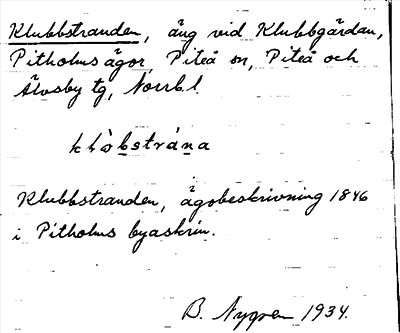 Klubbstranden, äng vid Klubbgärdan,
Pitholms ägor, Piteå sn, Piteå och
Älvsby tg, Norrb.l.
klòbstrána
Klubbstranden, ägobeskrivning 1846
i Pitholms byaskrin.
B. Nygren 1934.